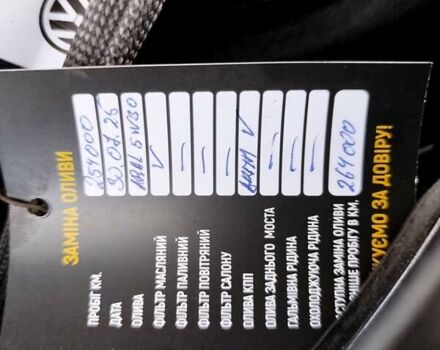 ЗАМІНА ОЛИВИ
ПРОБІГ КМ. 254000
ДАТА 30.07.25
ОЛИВА ARAL 5W30
ФІЛЬТР МАСЛЯНИЙ V
ФІЛЬТР ПАЛИВНИЙ —
ФІЛЬТР ПОВІТРЯНИЙ —
ФІЛЬТР САЛОНУ —
ОЛИВА КПП V
ОЛИВА ЗАДНЬОГО МОСТА —
ГАЛЬМІВНА РІДИНА —
ОХОЛОДЖУЮЧА РІДИНА —
СТУПНА ЗАМІНА ОЛИВИ 264000
ПРОБІГУ В КМ.
КУЄМО ЗА ДОВІРУ!